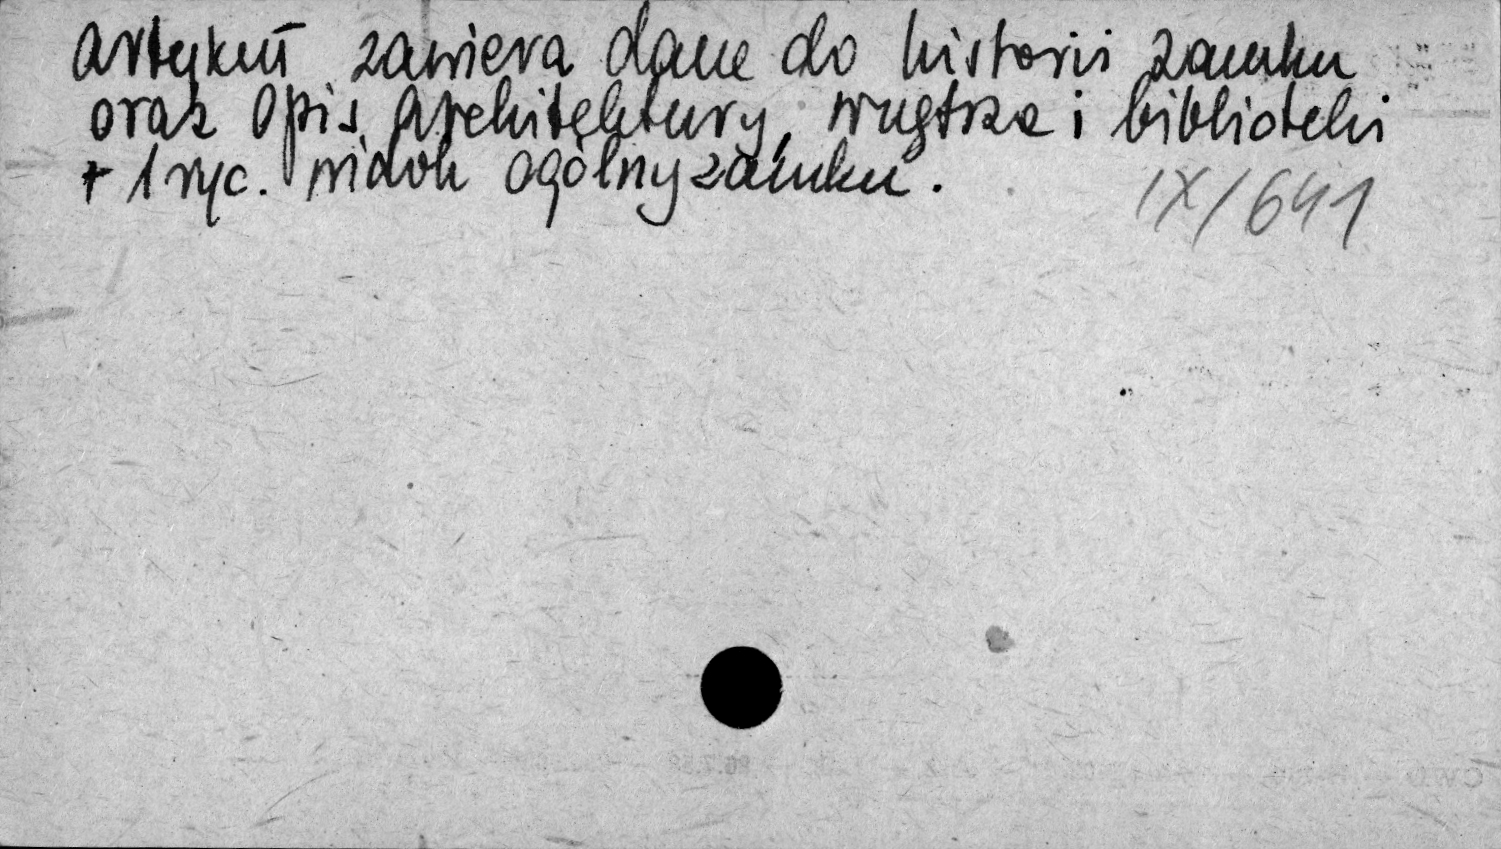 Artykuł zawiera dane do historii zamku
oraz opis architektury, wnętrza i biblioteki
+ 1 ryc. widok ogólny zamku.
IX/641